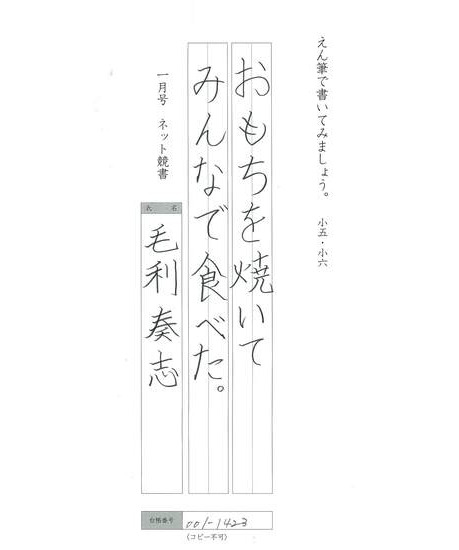 えん筆で書いてみましょう。　小五・小六
おもちを焼いて
みんなで食べた。
一月号　ネット競書
氏名
毛利奏志
台帳番号 001-1423
(コピー不可)